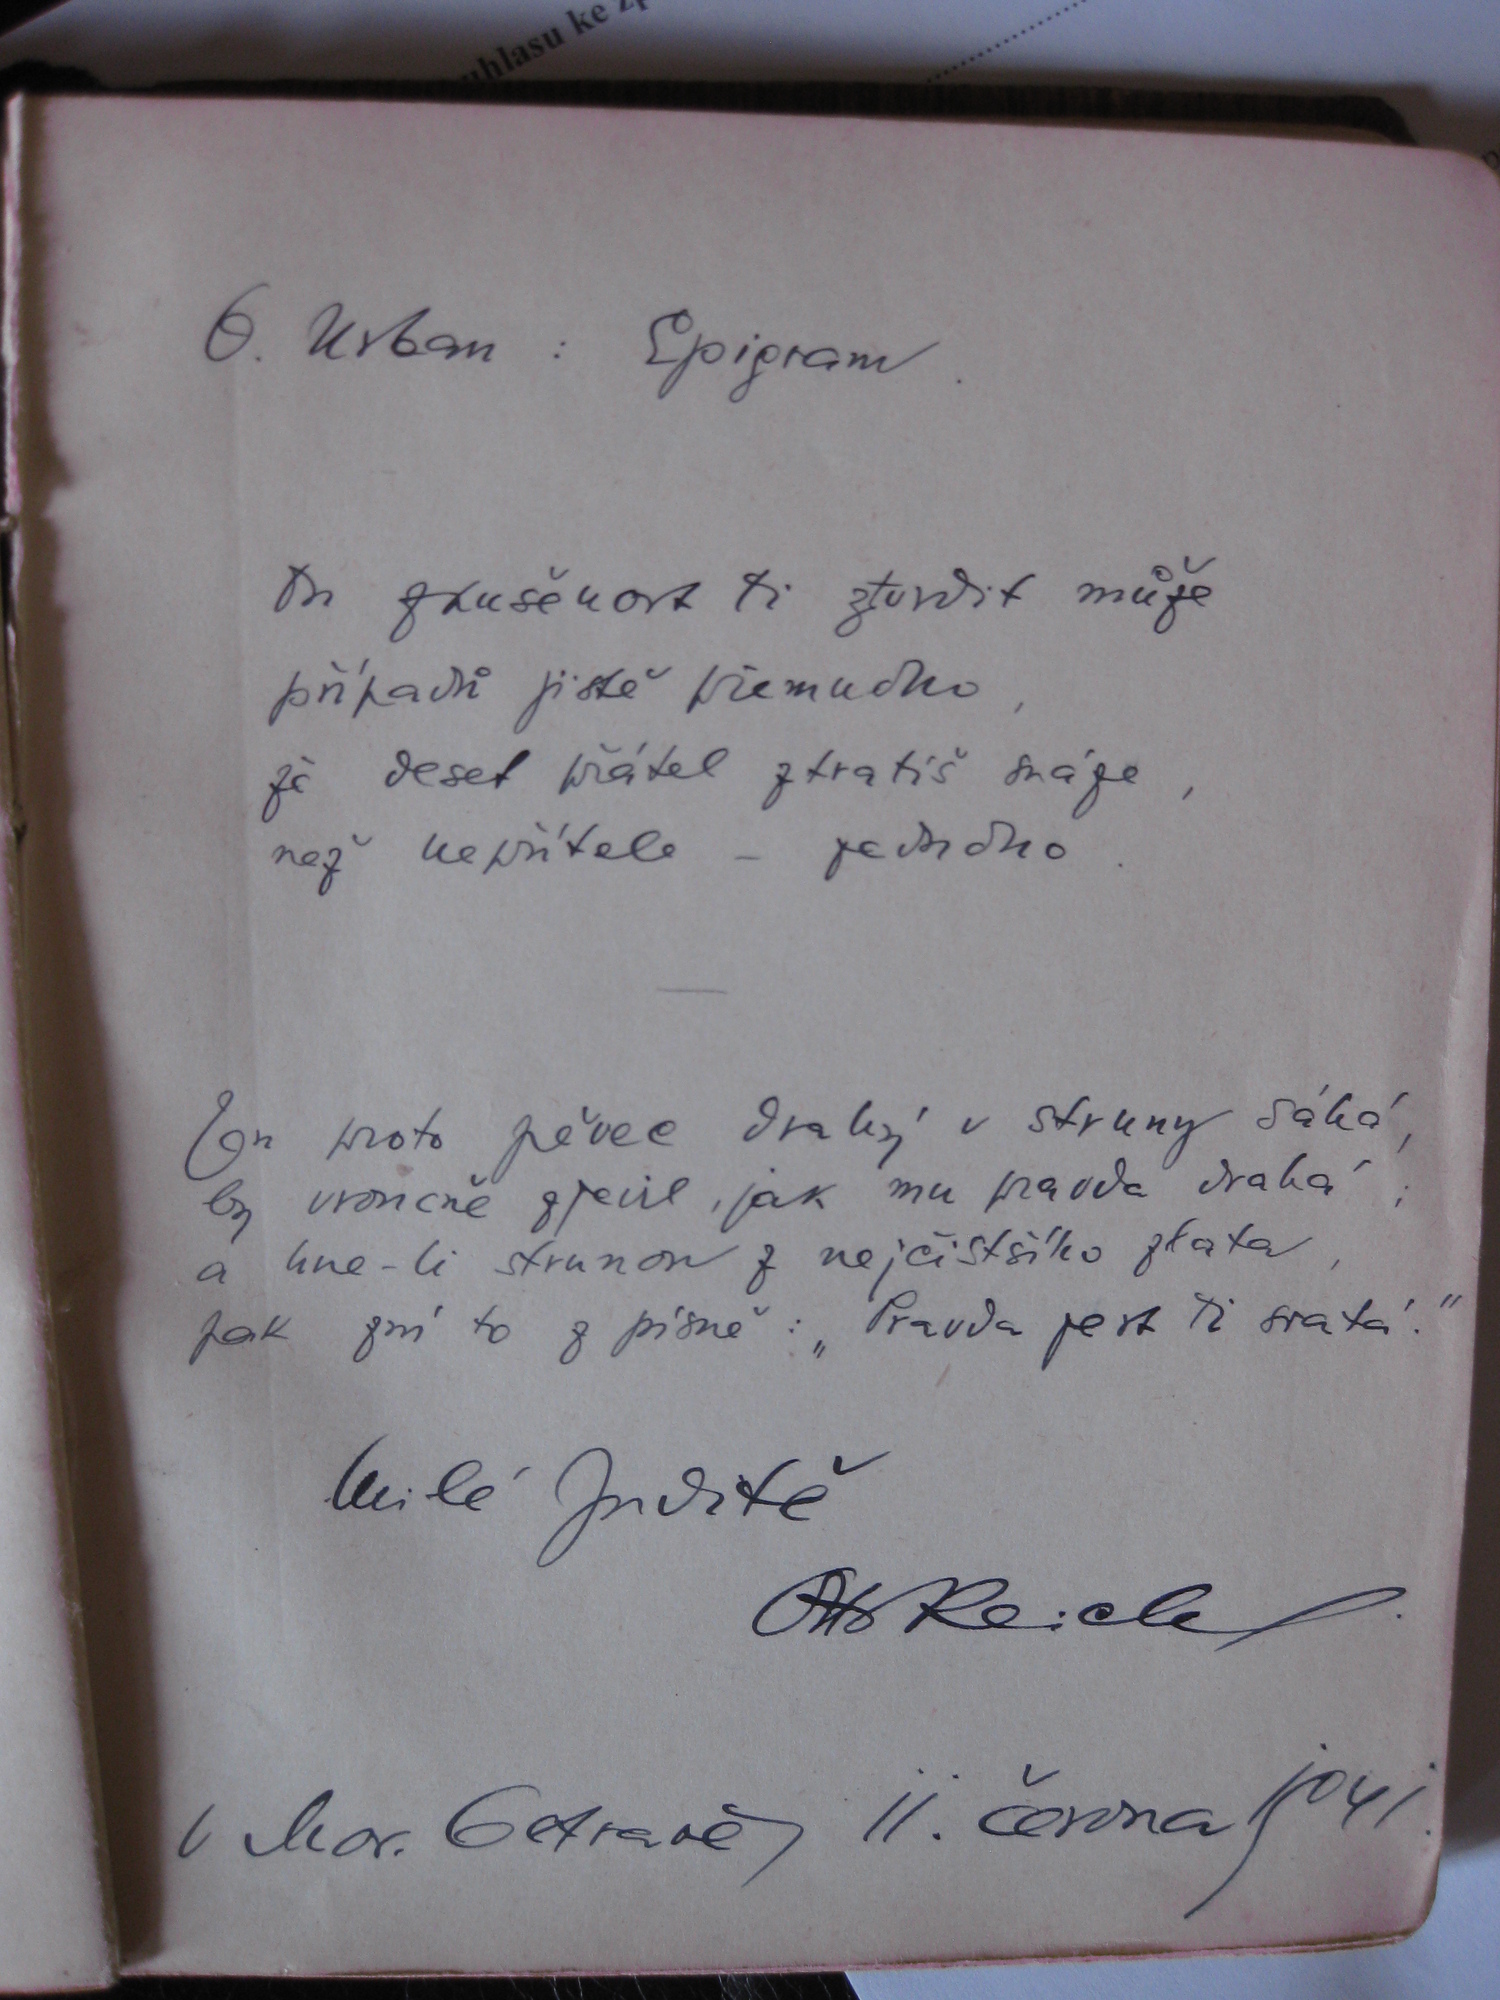 uhlasu ke zp
O. Urban : Epigram.
Tu zkušenost ti ztvrdit může
případů jistě přemudho,
že deset přátel ztratíš snáze,
než nepřítele - jednoho.
Ten proto pěvec drahý v struny sáhá,
by vroucně zjevil, jak mu pravda drahá;
a hne-li strunou z nejčistšího zlata,
jak zní to z písně: „Pravda jest ti svatá."
Milé Juditě
Otto Reich.
V Mor. Ostravě, 11. června 1941.